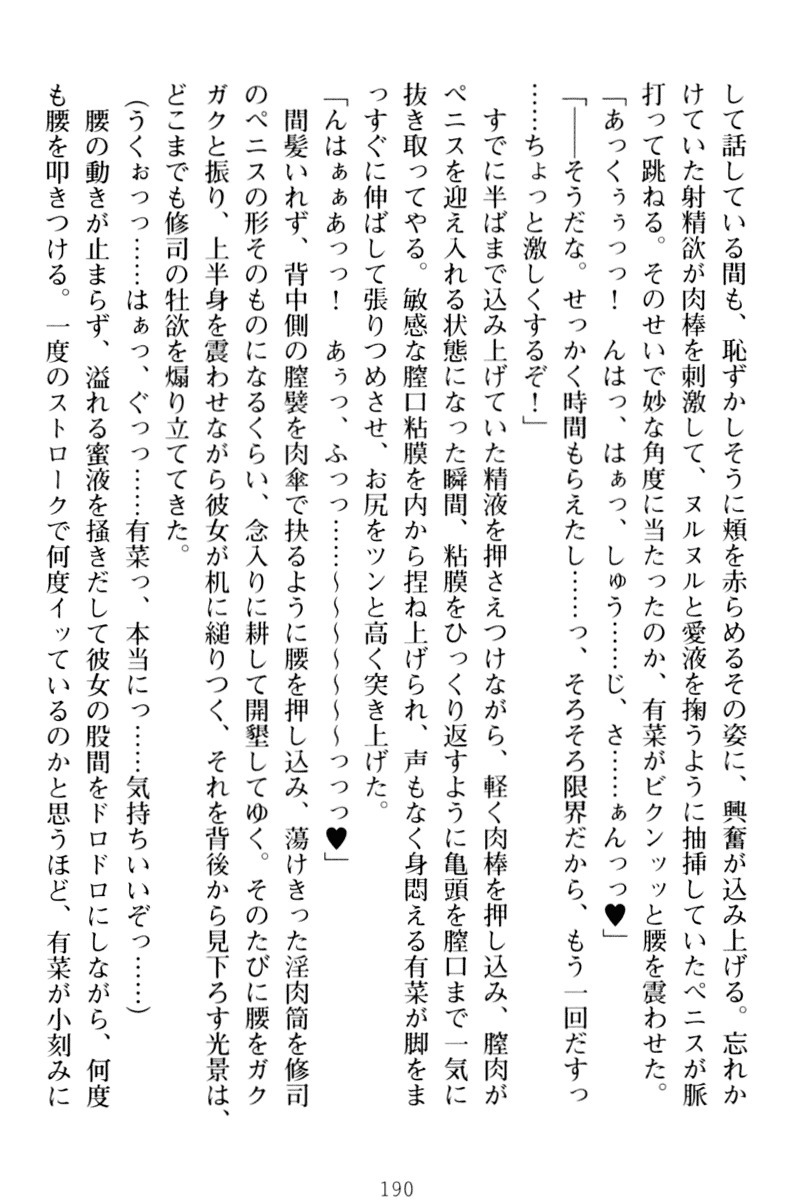 して話している間も、恥ずかしそうに頬を赤らめるその姿に、興奮が込み上げる。忘れか
けていた射精欲が肉棒を刺激して、ヌルヌルと愛液を掬うように抽挿していたペニスが脈
打って跳ねる。そのせいで妙な角度に当たったのか、有菜がビクンッッと腰を震わせた。
「あっくぅぅっっ！　んはっ、はぁっ、しゅう……じ、さ……ぁんっっ♥」
「――そうだな。せっかく時間もらえたし……っ、そろそろ限界だから、もう一回だすっ
……ちょっと激しくするぞ！」
すでに半ばまで込み上げていた精液を押さえつけながら、軽く肉棒を押し込み、膣肉が
ペニスを迎え入れる状態になった瞬間、粘膜をひっくり返すように亀頭を膣口まで一気に
抜き取ってやる。敏感な膣口粘膜を内から捏ね上げられ、声もなく身悶える有菜が脚をま
っすぐに伸ばして張りつめさせ、お尻をツンと高く突き上げた。
「んはぁぁあっっ！　あぅっ、ふっっ……～～～～～～っっっ♥」
間髪いれず、背中側の膣襞を肉傘で抉るように腰を押し込み、蕩けきった淫肉筒を修司
のペニスの形そのものになるくらい、念入りに耕して開墾してゆく。そのたびに腰をガク
ガクと振り、上半身を震わせながら彼女が机に縋りつく、それを背後から見下ろす光景は、
どこまでも修司の牡欲を煽り立ててきた。
（うくぉっっ……はぁっ、ぐっっ……有菜っ、本当にっ……気持ちいいぞっ……）
腰の動きが止まらず、溢れる蜜液を掻きだして彼女の股間をドロドロにしながら、何度
も腰を叩きつける。一度のストロークで何度イッているのかと思うほど、有菜が小刻みに
190